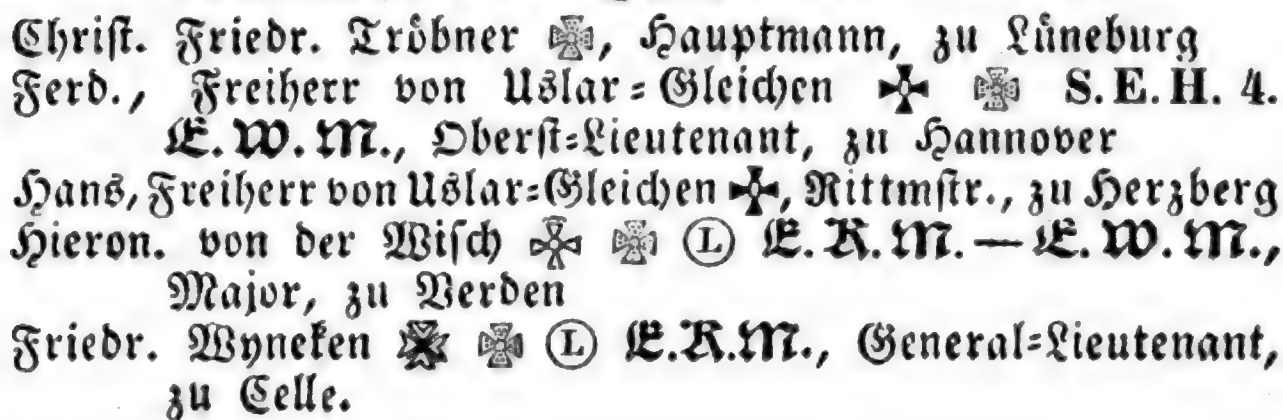 Christ. Friedr. Tröbner ✠, Hauptmann, zu Lüneburg
Ferd., Freiherr von Uslar=Gleichen ✠ ✠ S. E. H. 4.
E. W. M., Oberst=Lieutenant, zu Hannover
Hans, Freiherr von Uslar=Gleichen ✠, Rittmstr., zu Herzberg
Hieron. von der Wisch ✠ ✠ Ⓛ E. K. M. — E. W. M.,
Major, zu Verden
Friedr. Wyneken ✠ ✠ Ⓛ E. K. M., General=Lieutenant,
zu Celle.